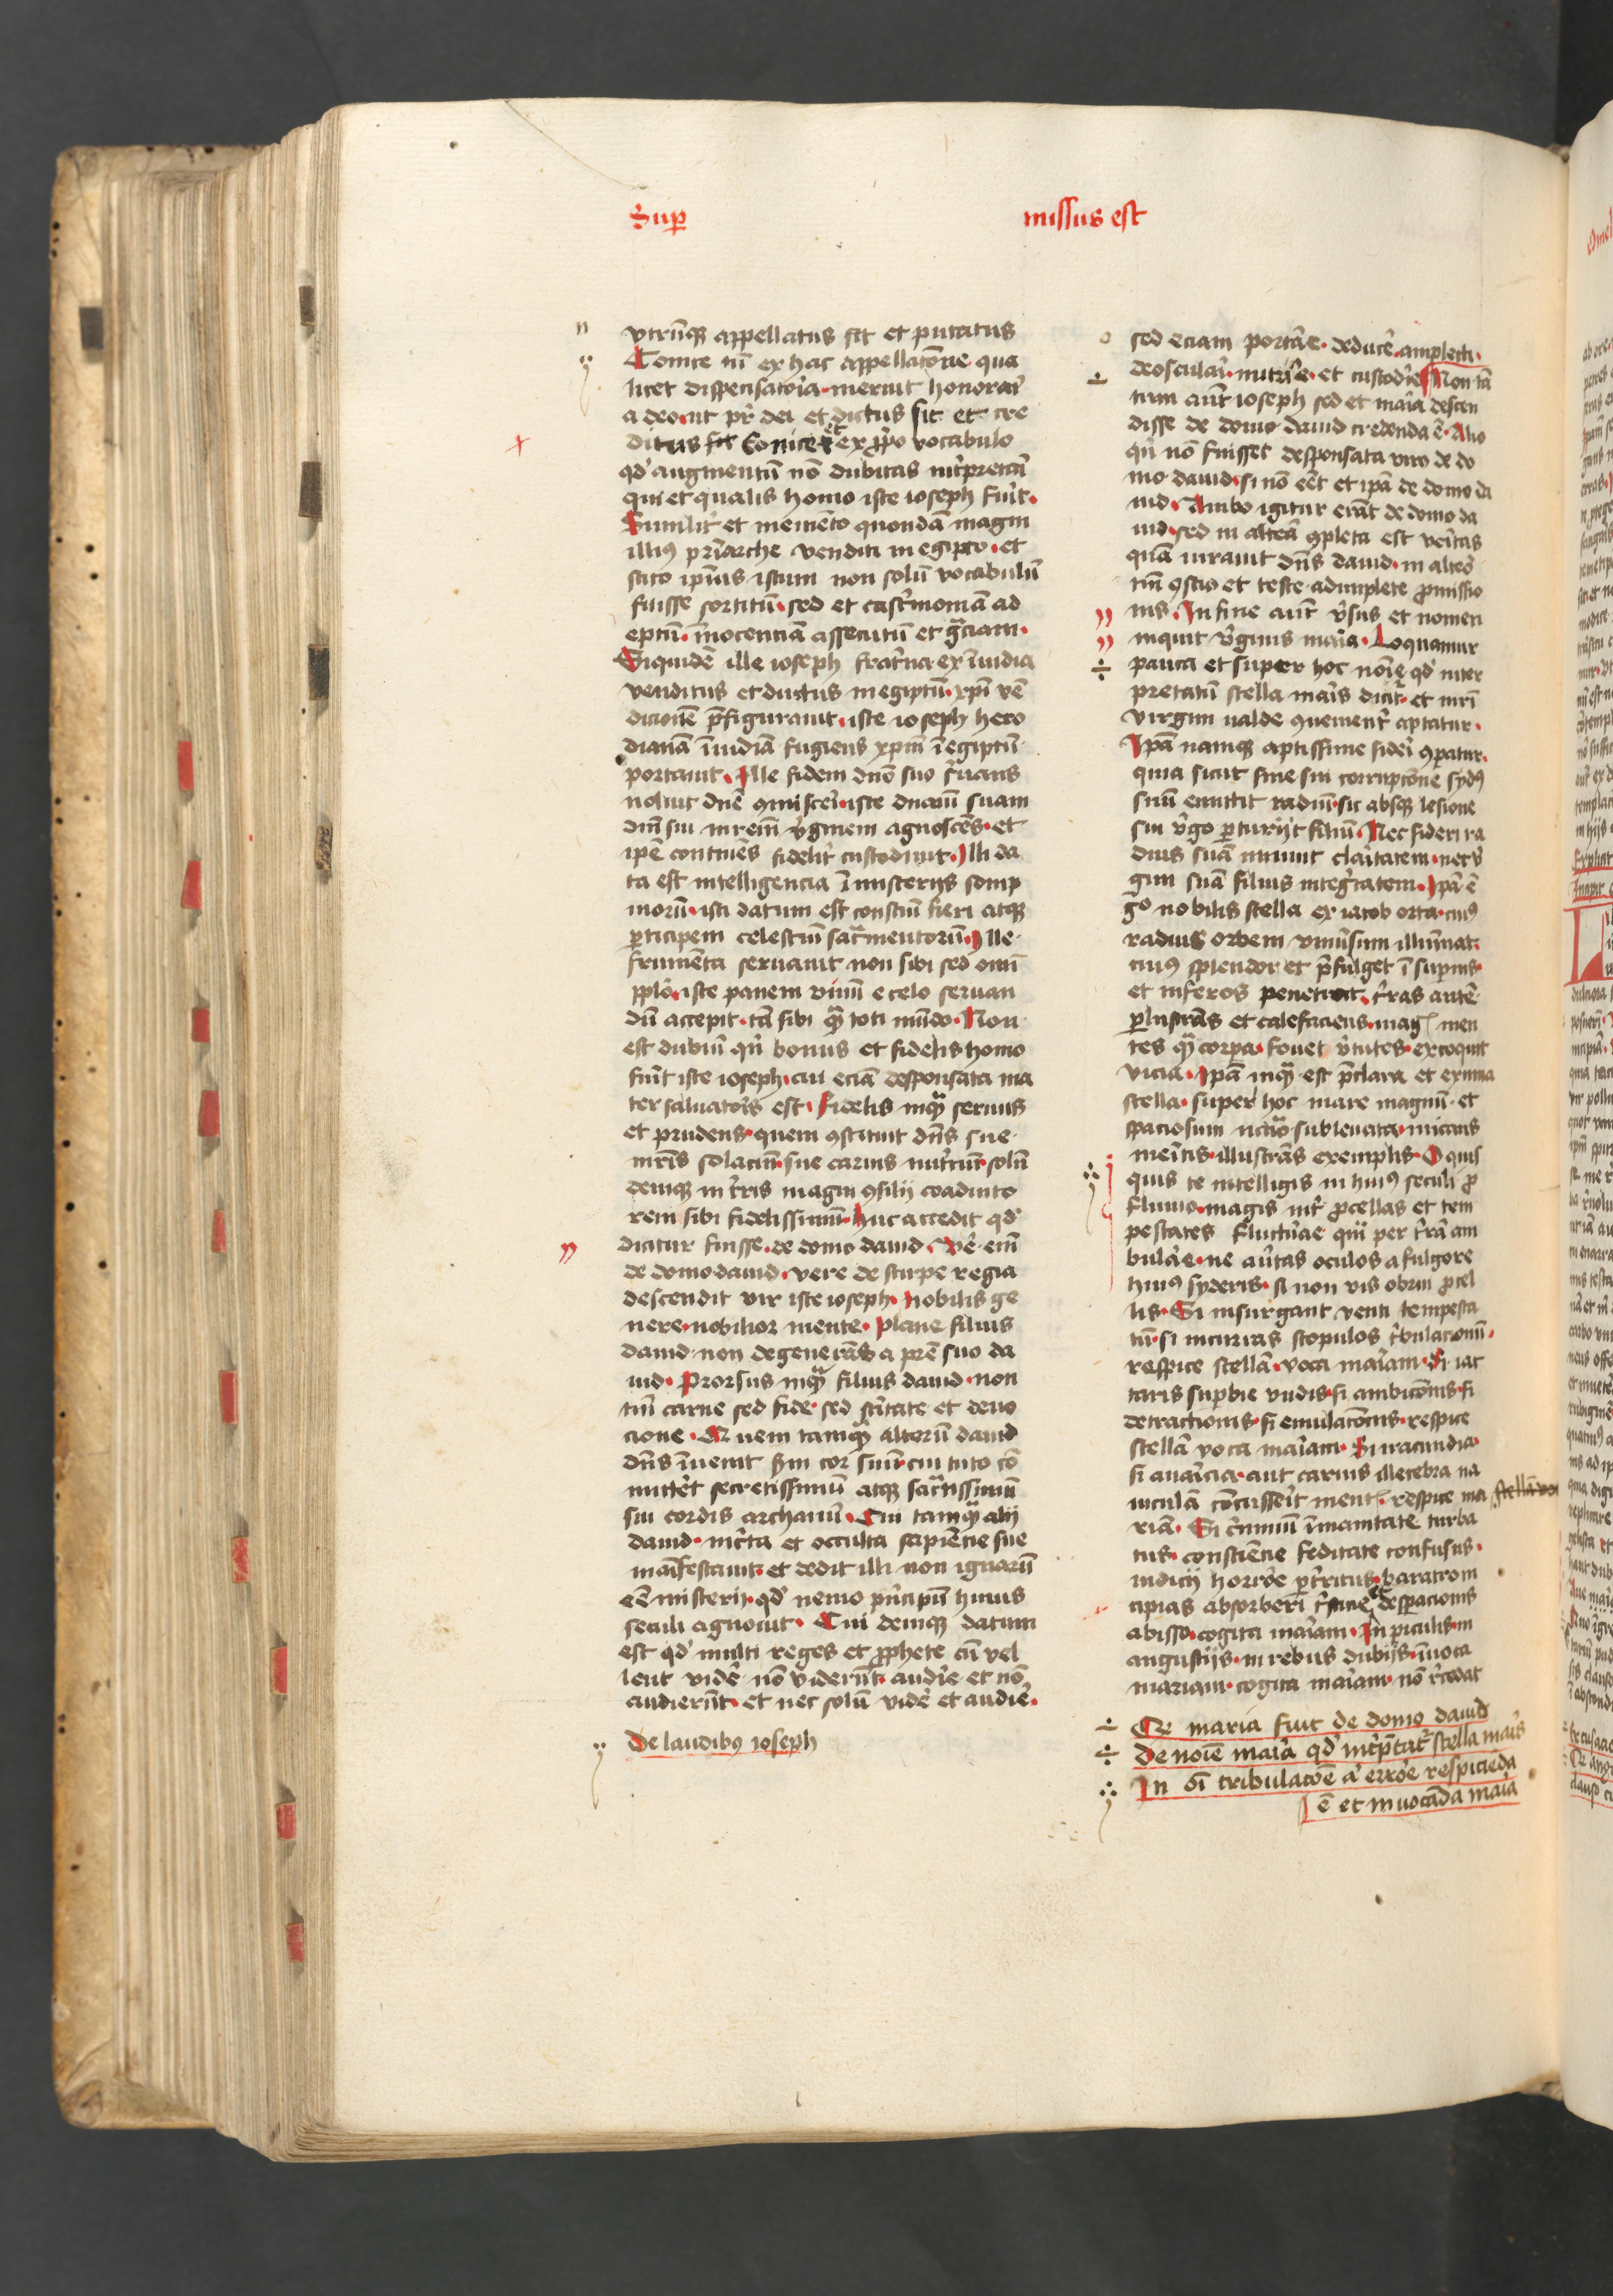 Suꝑ missus est
vtrūqꝫ appellatus sit et putatus
Conice tn̄ ex hac appellatōne qua
licet dispensatoria meruit honorari
a deo ut pr̄ dei et dictus sit et cre
ditus sit Conice et ex ꝓpo vocabulo
qd' augmentū nō dubitas int'pretari
qui et qualis homo iste ioseph fuit.
Similit' et memēto quondā magni
illiꝰ pr̄iarche venditi in egipto. et
scito ip̄ius istum non solū vocabulū
fuisse sortitū. sed et castimoniā ad
eptū. īnocenciā assecutū et gr̄aciam.
Siquidē ille ioseph frat'na ex īuidia
venditus et ductus in egiptū. xp̄i vē
dicionē p̄figurauit. iste ioseph hero
dianā īuidiā fugiens xp̄m ī egiptū
portauit. Ille fidem dn̄o suo s'uans
noluit dn̄e ꝯmisceri. iste dn̄am suam
dn̄i sui mr̄em v'ginem agnoscēs. et
ip̄e continēs fidelit' custodiuit. Illi da
ta est intelligencia ī misterijs somp
niorū. isti datum est consciū fieri atqꝫ
ꝑticipem celestiū sacr̄mentorū. Ille
frumēta seruauit non sibi sed omī
pp̄lo. iste panem viuū e celo seruan
dū accepit. tā sibi qꝫ toti mūdo. Non
est dubiū qn̄ bonus et fidelis homo
fuit iste ioseph. cui eciā desponsata ma
ter saluatoris est. Fidelis inqꝫ seruus
et prudens. quem ꝯstituit dn̄s sue
mr̄is solaciū. sue carnis nutriciū. solū
deniqꝫ in t'ris magni ꝯsilij coadiuto
rem sibi fidelissimū. Huc accedit qd'
dicitur fuisse. de domo dauid. Ve'e em̄
de domo dauid. vere de stirpe regia
descendit vir iste ioseph. nobilis ge
nere. nobilior mente. Plane filius
dauid. non degenerās a pr̄e suo da
uid. Prorsus inqꝫ filius dauid. non
tm̄ carne sed fide. sed scitate et deuo
cione. Quem tamqꝫ alterū dauid
dn̄s īuenit scdm cor suū. cui tuto cō
mitt'et secretissimū atqꝫ sacr̄tissimū
sui cordis archanū. Cui tamqꝫ alij
dauid. inc'ta et occulta sapiēcie sue
manifestauit. et dedit illi non ignarū
eē misterij. qd' nemo pn̄cipū huius
seculi agnouit. Cui deniqꝫ datum
est qd' multi reges et ꝓphete cū vel
lent vide'e nō viderūt. audi'e et nō
audierūt. et nec solū vide'e et audi'e.
De laudibꝰ ioseph
sed eciam porta'e. deduce'e. amplecti.
deosculari. nutri'e. et custodi'e Non tā
tum aūt ioseph sed et maria descen
disse de domo dauid credenda ē. Alio
qn̄ nō fuisset desponsata viro de do
mo dauid. si nō eēt et ip̄a de domo da
uid. Ambo igitur erāt de domo da
uid. sed in alterā ꝯpleta est veritas
quā iurauit dn̄s dauid. in altero
tm̄ ꝯscio et teste adimplete ꝓmissio
nis. In fine aūt v'sus et nomen
inquit v'ginis maria. Loquamur
pauca et super hoc noīe qd' inter
pretatū stella maris dicit'. et mr̄i
virgini ualde ꝯuenient' aptatur.
Ipā namqꝫ aptissime sideri ꝯpatur.
quia sicut sine sui corrupcōne sydꝰ
suū emittit radiū. sic absqꝫ lesione
sui v'go ꝑturijt filiū. Nec sideri ra
dius suā minuit claritatem. nec v'
gini suā filius integ'tatem. Ipā ē
gº nobilis stella ex iacob orta. cuiꝰ
radius orbem vniu'sum illuminat.
cuiꝰ splendor et p̄fulget ī supnis.
et inferos penetrat. t'ras autē
ꝑlustrās et calefaciens. magꝭ men
tes qꝫ corpa. fouet v'tutes. excoquit
vicia. Ipā inqꝫ est p̄clara et eximia
stella. super hoc mare magnū et
spaciosum necio subleuata. micans
meritis. illustrās exemplis. O quis
quis te intelligis in huiꝰ seculi ꝓ
fluuio. magis int' ꝓcellas et tem
pestates fluctuae qm̄ per t'rā am
bula'e. ne au'tas oculos a fulgore
huiꝰ syderis. si non vis obrui ꝓcel
lis. Si insurgant venti tempesta
tū. si incurras scopulos t'bulacionū.
respice stellā. voca mariam. Si iac
taris supbie vndis. si ambicōnis. si
detractionis. si emulatōnis. respice
stellā voca mariam. Si iracundia.
si auaricia. aut carnis illecebra na
uiculā cōcusserit mentꝭ. respice ma
riā. Si c'minū īmanitate turba
tus. consciēcie feditate confusus.
iudicij horro'e ꝑt'ritus. baratro in
cipias absorberi t'sticie et despacionis
abisso. cogita mariam. In piculis. in
angustijs. in rebus dubijs. īuoca
mariam. cogita mariam. nō r'cedat
Qꝫ maria fuit de domo dauid
De noīe maria qd' int'p̄tat' stella maris
In oī tribulacōe a' erro'e respicieda
ē et inuocāda maria